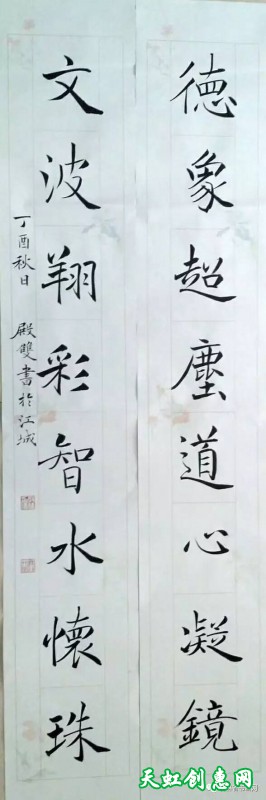 德象超塵道心凝鏡
文波翔彩智水懷珠
丁酉秋日 殿雙書於江城
天虹创惠网